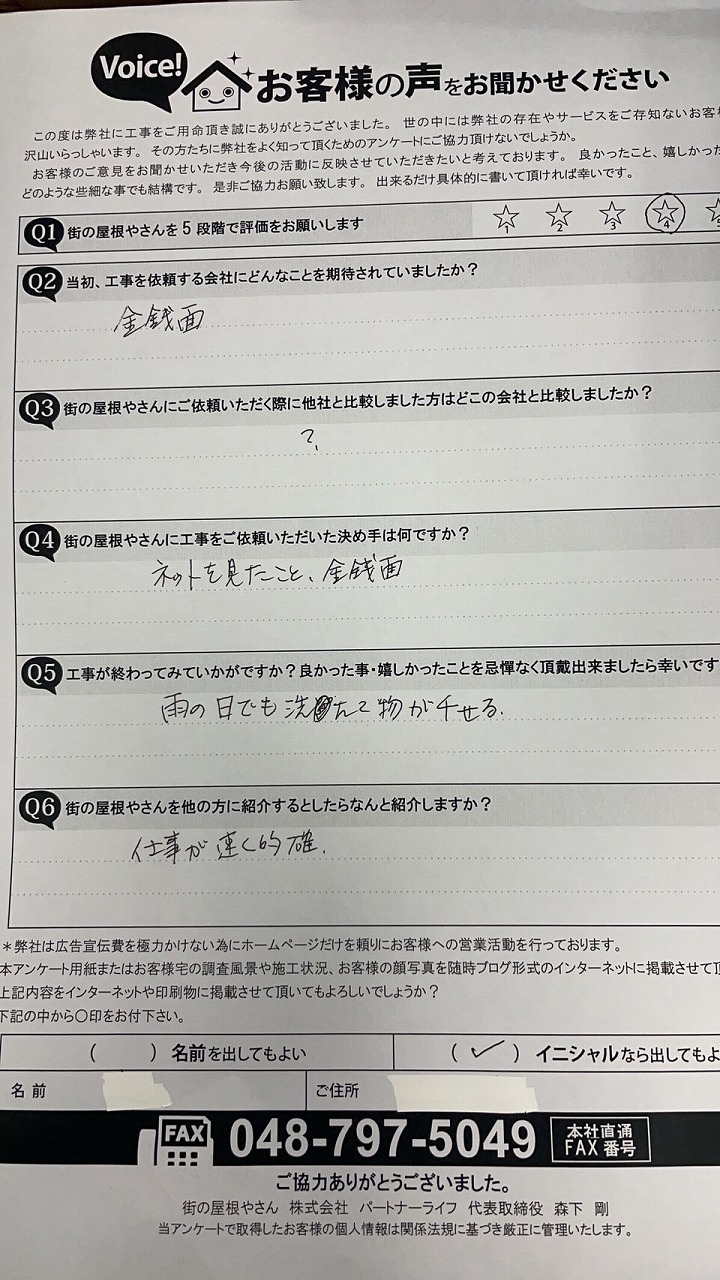 Voice! お客様の声をお聞かせください
この度は弊社に工事をご用命頂き誠にありがとうございました。 世の中には弊社の存在やサービスをご存知ないお客様
沢山いらっしゃいます。 その方たちに弊社をよく知って頂くためのアンケートにご協力頂けないでしょうか。
お客様のご意見をお聞かせいただき今後の活動に反映させていただきたいと考えております。 良かったこと、嬉しかった
どのような些細な事でも結構です。 是非ご協力お願い致します。 出来るだけ具体的に書いて頂ければ幸いです。
Q1 街の屋根やさんを5段階で評価をお願いします ☆1 ☆2 ☆3 ☆4 ☆5
Q2 当初、工事を依頼する会社にどんなことを期待されていましたか?
金銭面
Q3 街の屋根やさんにご依頼いただく際に他社と比較しました方はどこの会社と比較しましたか?
?
Q4 街の屋根やさんに工事をご依頼いただいた決め手は何ですか?
ネットを見たこと、金銭面
Q5 工事が終わってみていかがですか?良かった事・嬉しかったことを忌憚なく頂戴出来ましたら幸いです
雨の日でも洗たく物が干せる.
Q6 街の屋根やさんを他の方に紹介するとしたらなんと紹介しますか?
仕事が速く的確.
*弊社は広告宣伝費を極力かけない為にホームページだけを頼りにお客様への営業活動を行っております。
本アンケート用紙またはお客様宅の調査風景や施工状況、お客様の顔写真を随時ブログ形式のインターネットに掲載させて頂
上記内容をインターネットや印刷物に掲載させて頂いてもよろしいでしょうか?
下記の中から〇印をお付下さい。
( ) 名前を出してもよい ( ✓ ) イニシャルなら出してもよ
名 前 ご住所
FAX 048-797-5049 本社直通 FAX 番号
ご協力ありがとうございました。
街の屋根やさん 株式会社 パートナーライフ 代表取締役 森下 剛
当アンケートで取得したお客様の個人情報は関係法規に基づき厳正に管理いたします。